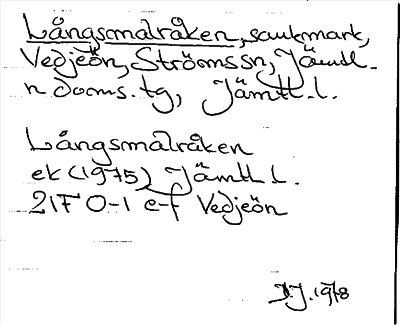 Långsmalråken, sankmark,
Vedjeön, Ströms sn, Jämtl.
n doms. tg, Jämtl. l.
Långsmalråken
ek (1975) Jämtl l.
21F 0-1 e-f Vedjeön
D.J. 1978